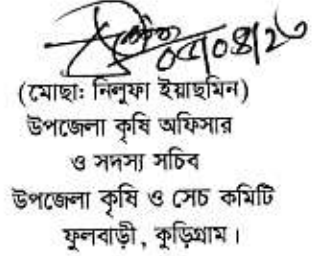 (মোছাঃ নিলুফা ইয়াছমিন)
উপজেলা কৃষি অফিসার
ও সদস্য সচিব
উপজেলা কৃষি ও সেচ কমিটি
ফুলবাড়ী, কুড়িগ্রাম।